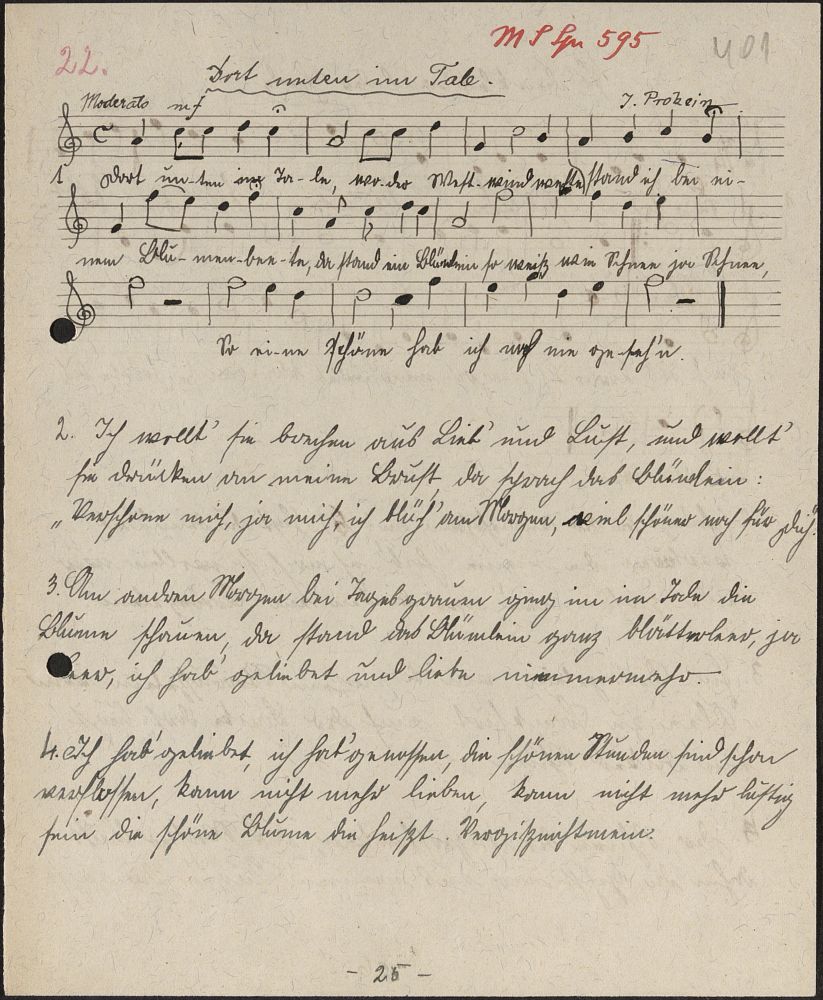 22.
401
Dort unten im Tale.
Moderato mf
J. Prokein
1 Dort un-ten im Ta-le, wo der West-wind wehte stand ich bei ei-
nem Blu-men-bee-te, da stand ein Blümlein so weiß wie Schnee ja Schnee,
So ei-ne Schöne hab ich noch nie ge-seh'n.
2. Ich wollt' sie brechen aus Lieb' und Lust, und wollt'
sie drücken an meine Brust, da sprach das Blümlein:
"Verschone mich, ja mich, ich blüh' am Morgen, viel schöner noch für Dich."
3. Am andren Morgen bei Tagesgrauen ging im im Tale die
Blume schauen, da stand das Blümlein ganz blätterleer, ja
leer, ich hab' geliebet und liebe nimmermehr.
4. Ich hab' geliebet, ich hab' genossen, die schönen Stunden sind schon
verflossen, kann nicht mehr lieben, kann nicht mehr lustig
sein die schöne Blume die heißt. Vergißnichtmein.
- 25 -